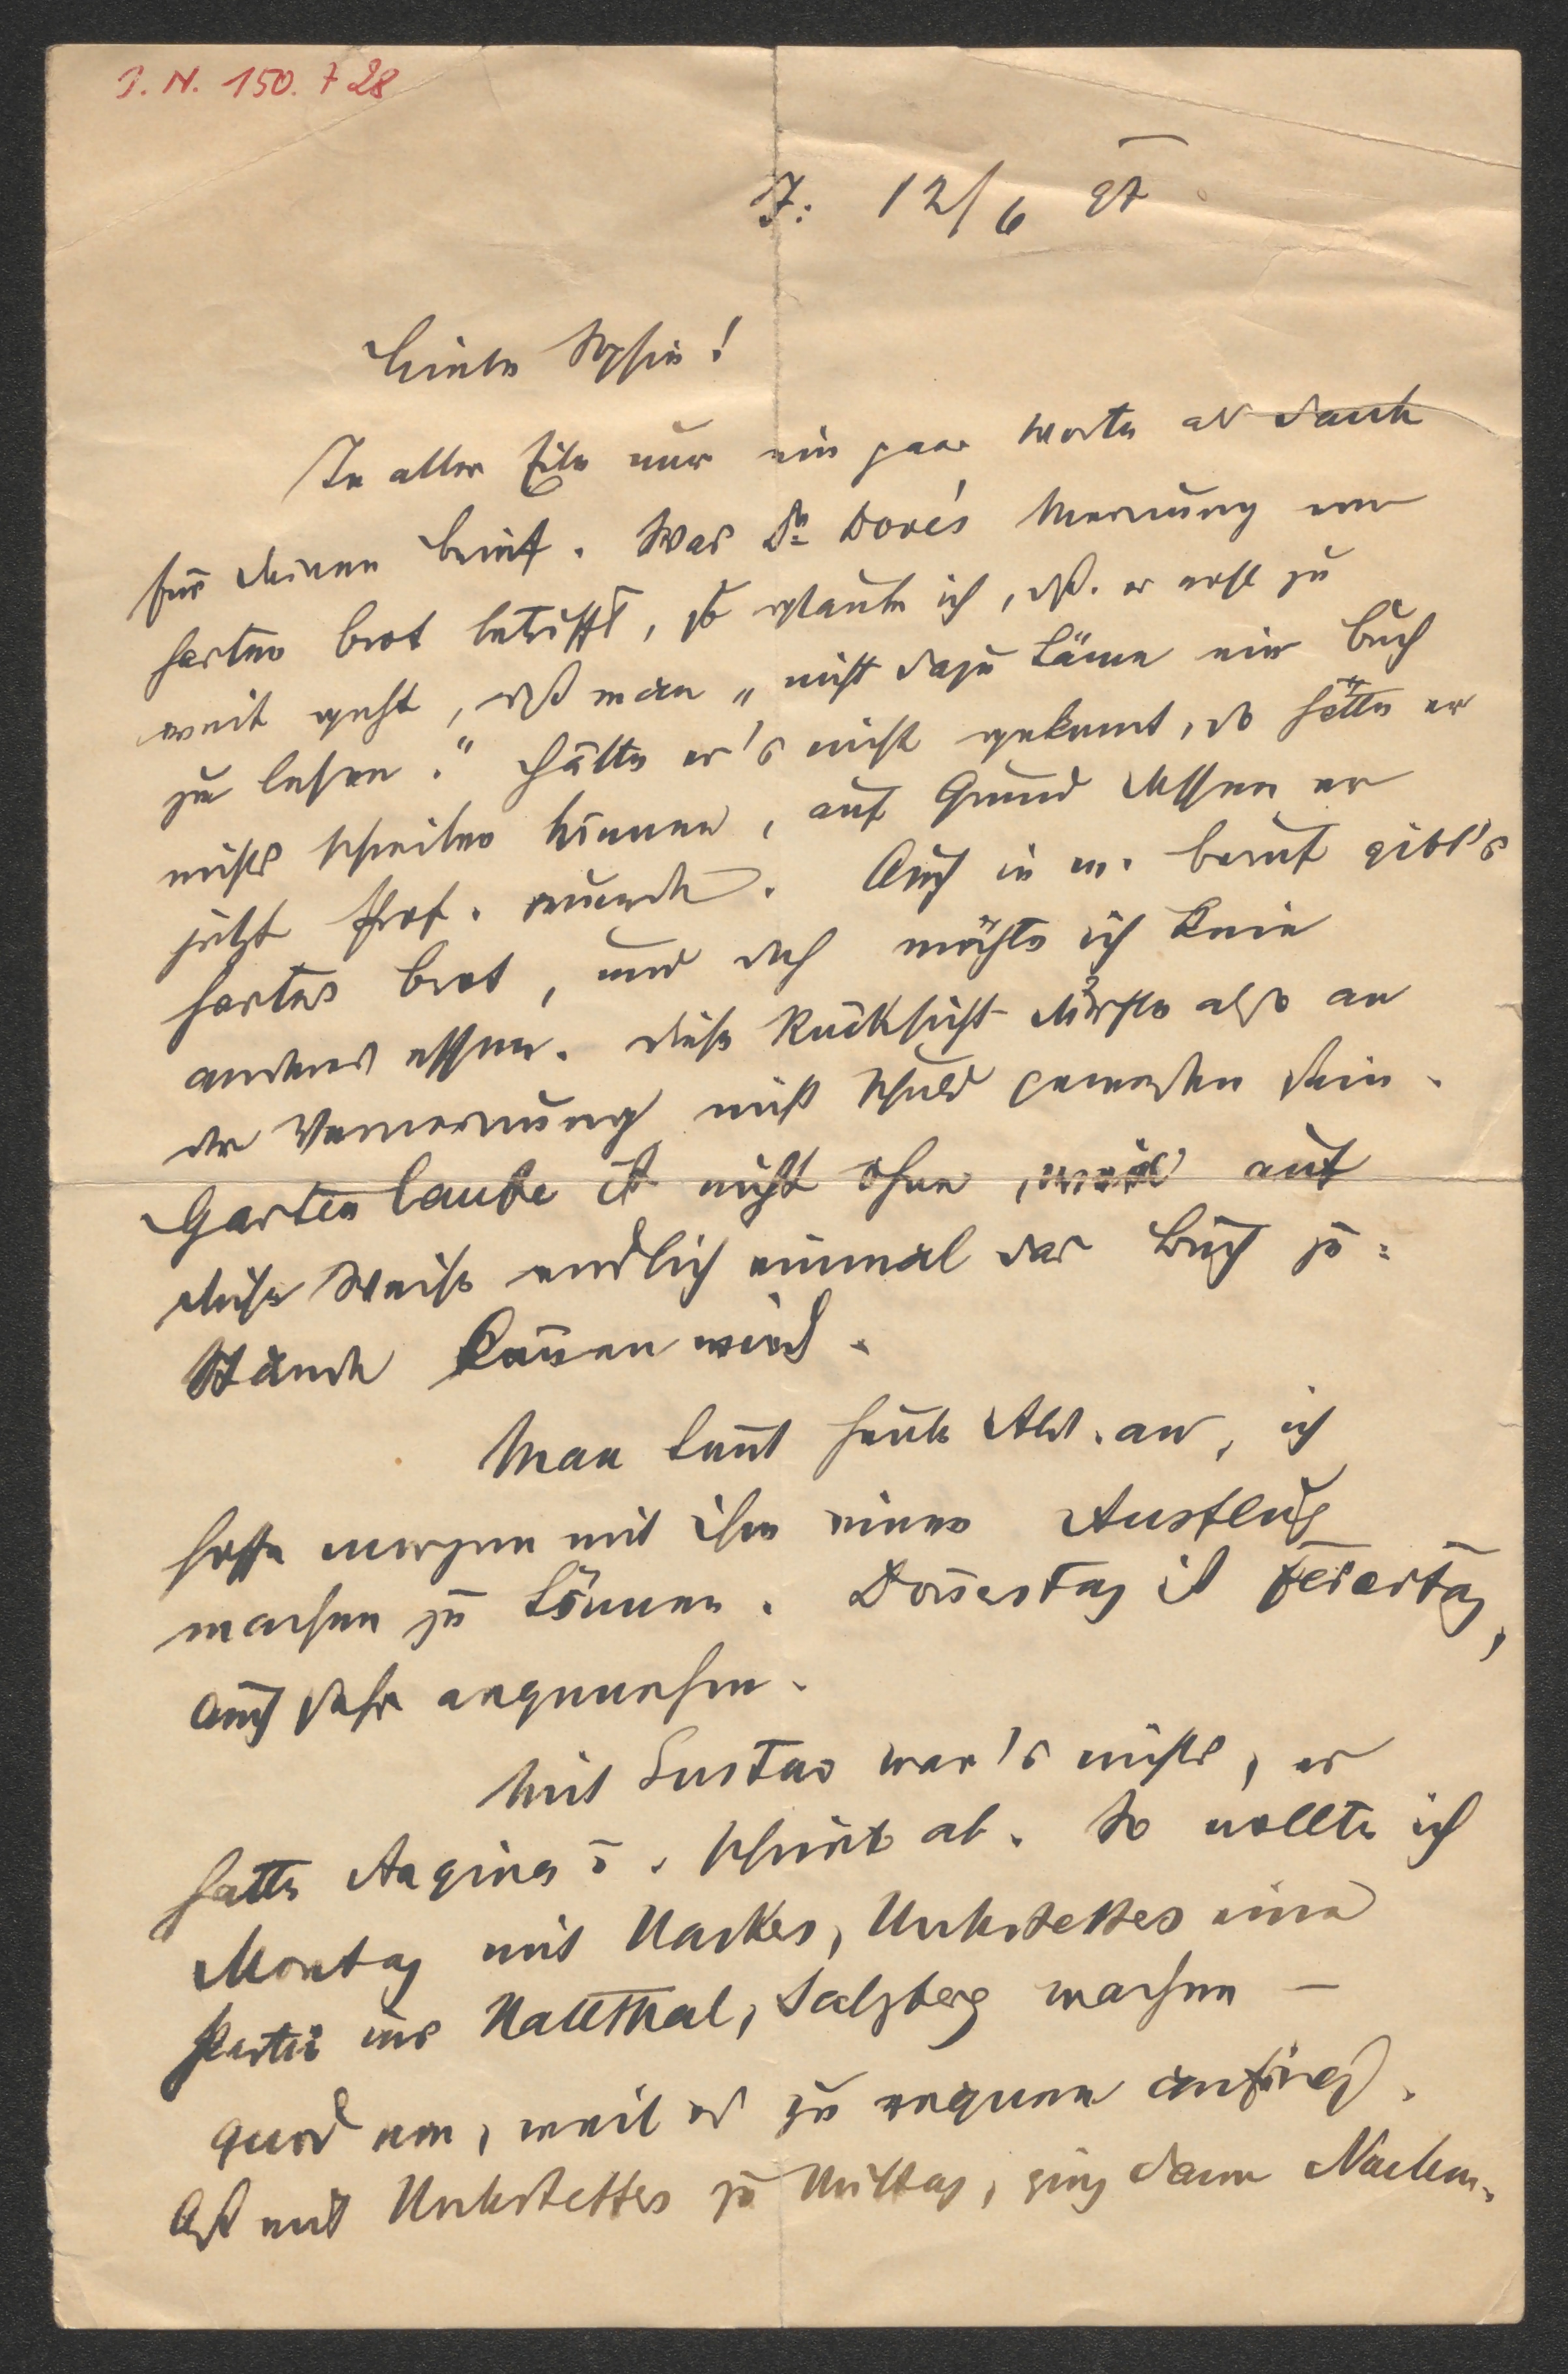 I. N. 150.728
J: 12/6 97
Liebe Sophie!
In aller Eile nur ein paar Worte als Dank
für deinen Brief. Was Dr Dove's Meinung vom
harten Brot betrifft, so glaube ich, dß. er wohl zu
weit geht, dß man „nicht dazu käme ein Buch
zu lesen." Hätte er's nicht gekannt, so hätte er
nichts schreiben können, auf Grund dessen er
jetzt Prof. wurde. Auch in m. Beruf gibt's
hartes Brot, und doch möchte ich kein
anderes essen. Diese Rücksicht dürfte also an
der Verneinung nicht Schuld gewesen sein.
Gartenlaube ist nicht ohne, weil auf
diese Weise endlich einmal das Buch zu=
stande kommen wird.
Max kommt heute Abd. an, ich
hoffe morgen mit ihm einen Ausflug
machen zu können. Donnerstag ist Feiertag,
auch sehr angenehm.
Mit Gustav war's nichts, er
hatte Angina u. schrieb ab. So wollte ich
Montag mit Unterstettes eine
Partie ins Hallthal, Salzberg machen —
weil es zu regnen anfing.
Aß mit Unterstettes zu Mittag, ging dann Nachm.